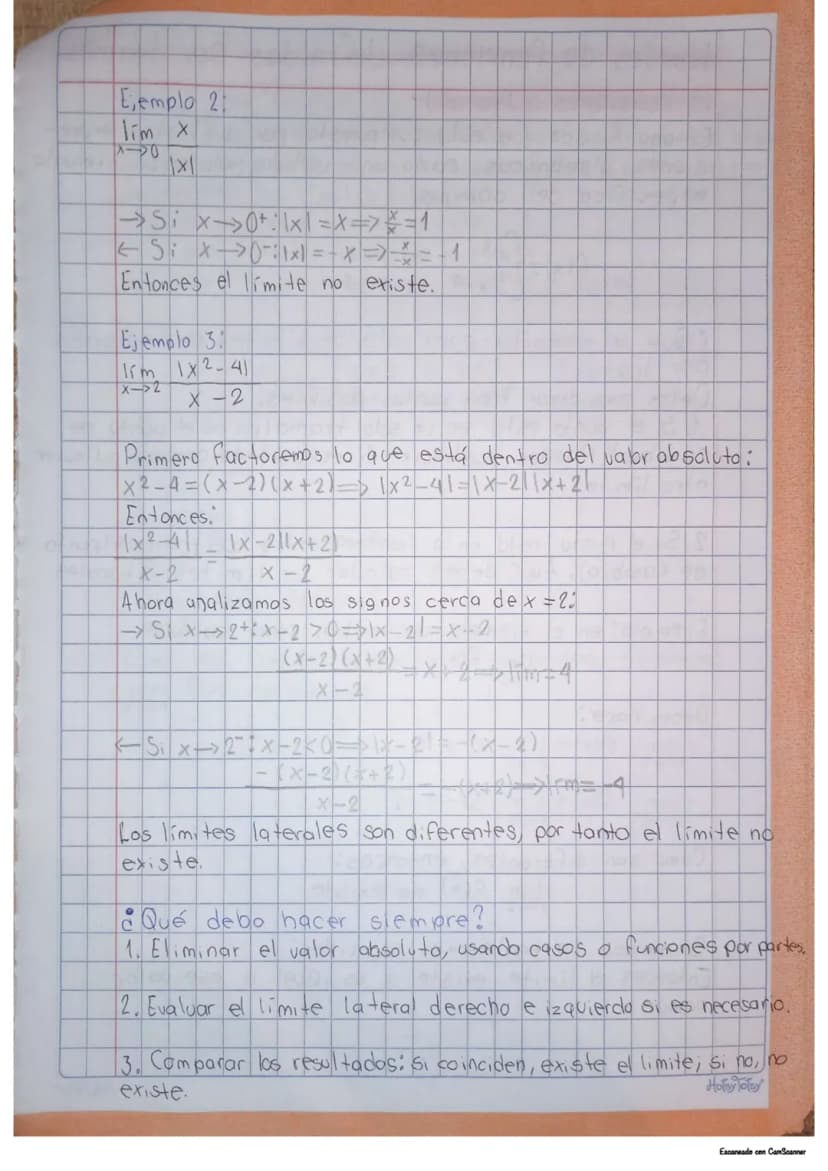 Ejemplo 2:
lím x
x→0 |x|
→ Si x→0⁺: |x| = x => x/x = 1
← Si x→0⁻: |x| = -x => x/-x = -1
Entonces el límite no existe.
Ejemplo 3:
lím |x²-4|
x→2 x-2
Primero factoremos lo que está dentro del valor absoluto:
x²-4=(x-2)(x+2)=> |x²-4|=|x-2||x+2|
Entonces:
|x²-4| = |x-2||x+2)
x-2 x-2
Ahora analizamos los signos cerca de x=2:
→ Si x→2⁺: x-2>0=>|x-2|=x-2
(x-2)(x+2) = x+2 => lím=4
x-2
← Si x→2⁻: x-2<0=>|x-2|=-(x-2)
-(x-2)(x+2) = -(x+2)=>lím=-4
x-2
Los límites laterales son diferentes, por tanto el límite no
existe.
¿Qué debo hacer siempre?
1. Eliminar el valor absoluto, usando casos o funciones por partes.
2. Evaluar el límite lateral derecho e izquierdo si es necesario.
3. Comparar los resultados: si coinciden, existe el límite; si no, no
existe.
HotsyTotsy
Escaneado con CamScanner